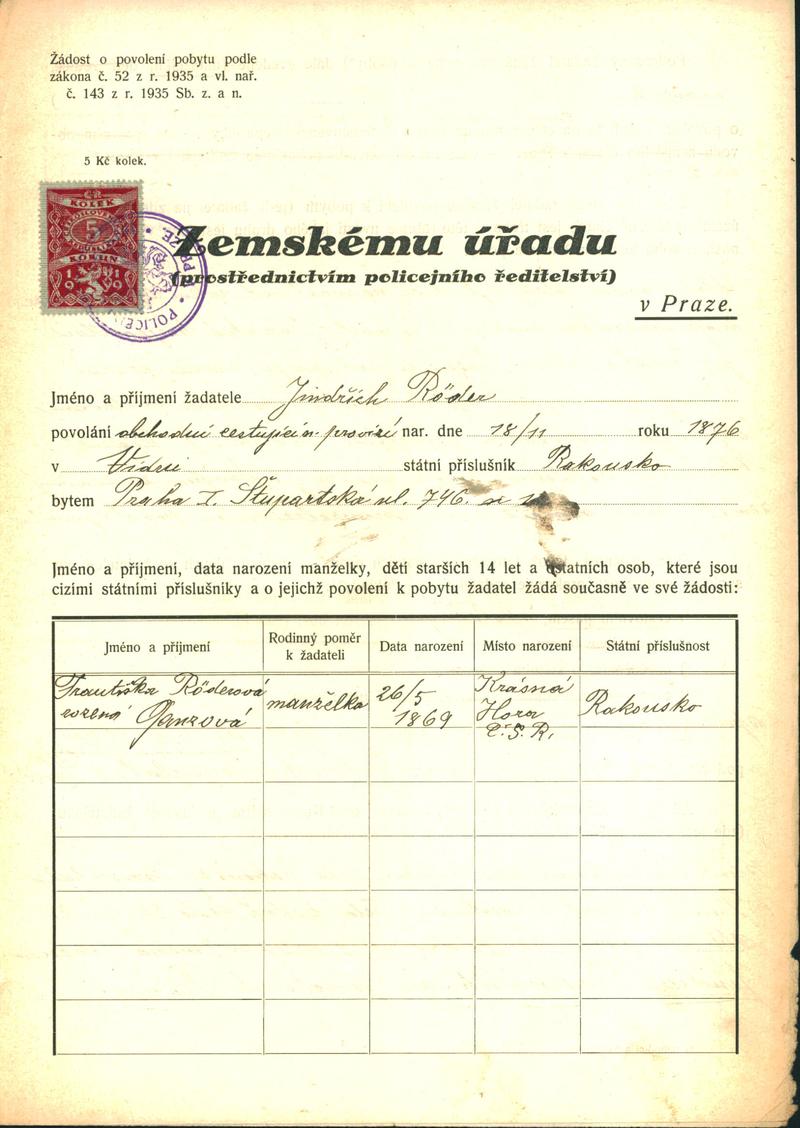 Žádost o povolení pobytu podle
zákona č. 52 z r. 1935 a vl. nař.
č. 143 z r. 1935 Sb. z. a n.
5 Kč kolek.
KOLEK
5
KORUN
1919
POLICEJ
PRAZE
Zemskému úřadu
(prostřednictvím policejního ředitelství)
v Praze.
Jméno a příjmení žadatele Jindřich Röder
povolání obchodní cestující n. provizi nar. dne 18/11 roku 1876
v Vídni státní příslušník Rakousko
bytem Praha I. Štupartská ul. 746.
Jméno a příjmení, data narození manželky, dětí starších 14 let a ostatních osob, které jsou
cizími státními příslušníky a o jejichž povolení k pobytu žadatel žádá současně ve své žádosti:
Jméno a příjmení
Rodinný poměr
k žadateli
Data narození
Místo narození
Státní příslušnost
Františka Röderová
rozená Ganzová
manželka
26/5
1869
Krásná
Hora
Č.S.R.
Rakousko